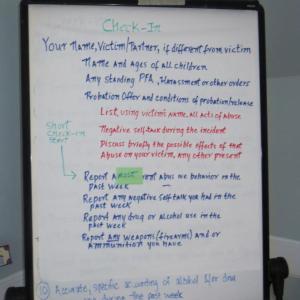 Check-In
Your Name, Victim/Partner, if different from victim
Name and ages of all children
Any Standing PFA, Harassment or other orders
Probation Officer and conditions of probation/release
List, using victim's name, all acts of abuse
Negative self-talk during the incident
Discuss briefly the possible effects of that
Abuse on your victim, any other present
Short
Check-in
Start
Report most abusive behavior in the
past week
Report any negative self-talk you had in the
past week
Report any drug or alcohol use in the
past week
Report any weapons (firearms) and or
ammunition you have
Accurate, specific accounting of alcohol &/or drug
use during the past week